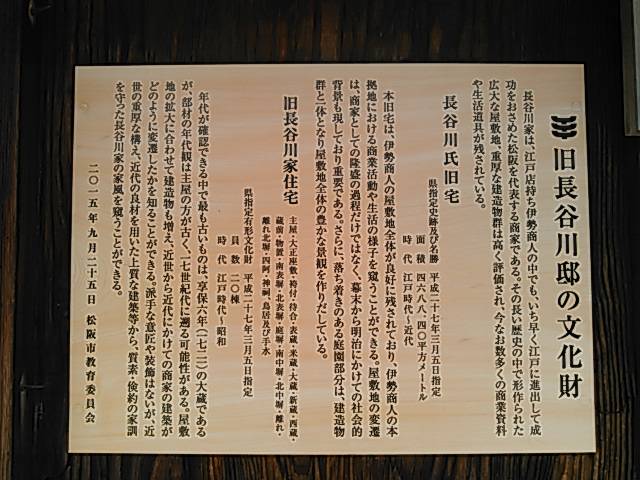 旧長谷川邸の文化財
長谷川家は、江戸店持ち伊勢商人の中でもいち早く江戸に進出して成
功をおさめた松阪を代表する商家である。その長い歴史の中で形作られた
広大な屋敷地、重厚な建造物群は高く評価され、今なお数多くの商業資料
や生活道具が残されている。
長谷川氏旧宅
県指定史跡及び名勝 平成二十七年三月五日指定
面積 四六八八・四〇平方メートル
時代 江戸時代〜近代
本旧宅は、伊勢商人の屋敷地全体が良好に残されており、伊勢商人の本
拠地における商業活動や生活の様子を窺うことができる。屋敷地の変遷
は、商家としての隆盛の過程だけではなく、幕末から明治にかけての社会的
背景も現しており重要である。さらに、落ち着きのある庭園部分は、建造物
群と一体となり屋敷地全体の豊かな景観を作りだしている。
旧長谷川家住宅
主屋・大正座敷・袴付・待合・表蔵・米蔵・大蔵・新蔵・西蔵・
蔵前・物置・南表塀・北表塀・庭塀・南中塀・北中塀・離れ・
離れ北塀・四阿・神祠、鳥居及び手水
県指定有形文化財 平成二十七年三月五日指定
員数 二〇棟
時代 江戸時代〜昭和
年代が確認できる中で最も古いものは、享保六年(一七二一)の大蔵である
が、部材の年代観は主屋の方が古く、一七世紀代に遡る可能性がある。屋敷
地の拡大に合わせて建造物も増え、近世から近代にかけての商家の建築が
どのように変遷したかを知ることができる。派手な意匠や装飾はないが、近
世の重厚な構え、近代の良材を用いた上質な建築等から、質素・倹約の家訓
を守った長谷川家の家風を窺うことができる。
二〇一五年九月二十五日 松阪市教育委員会